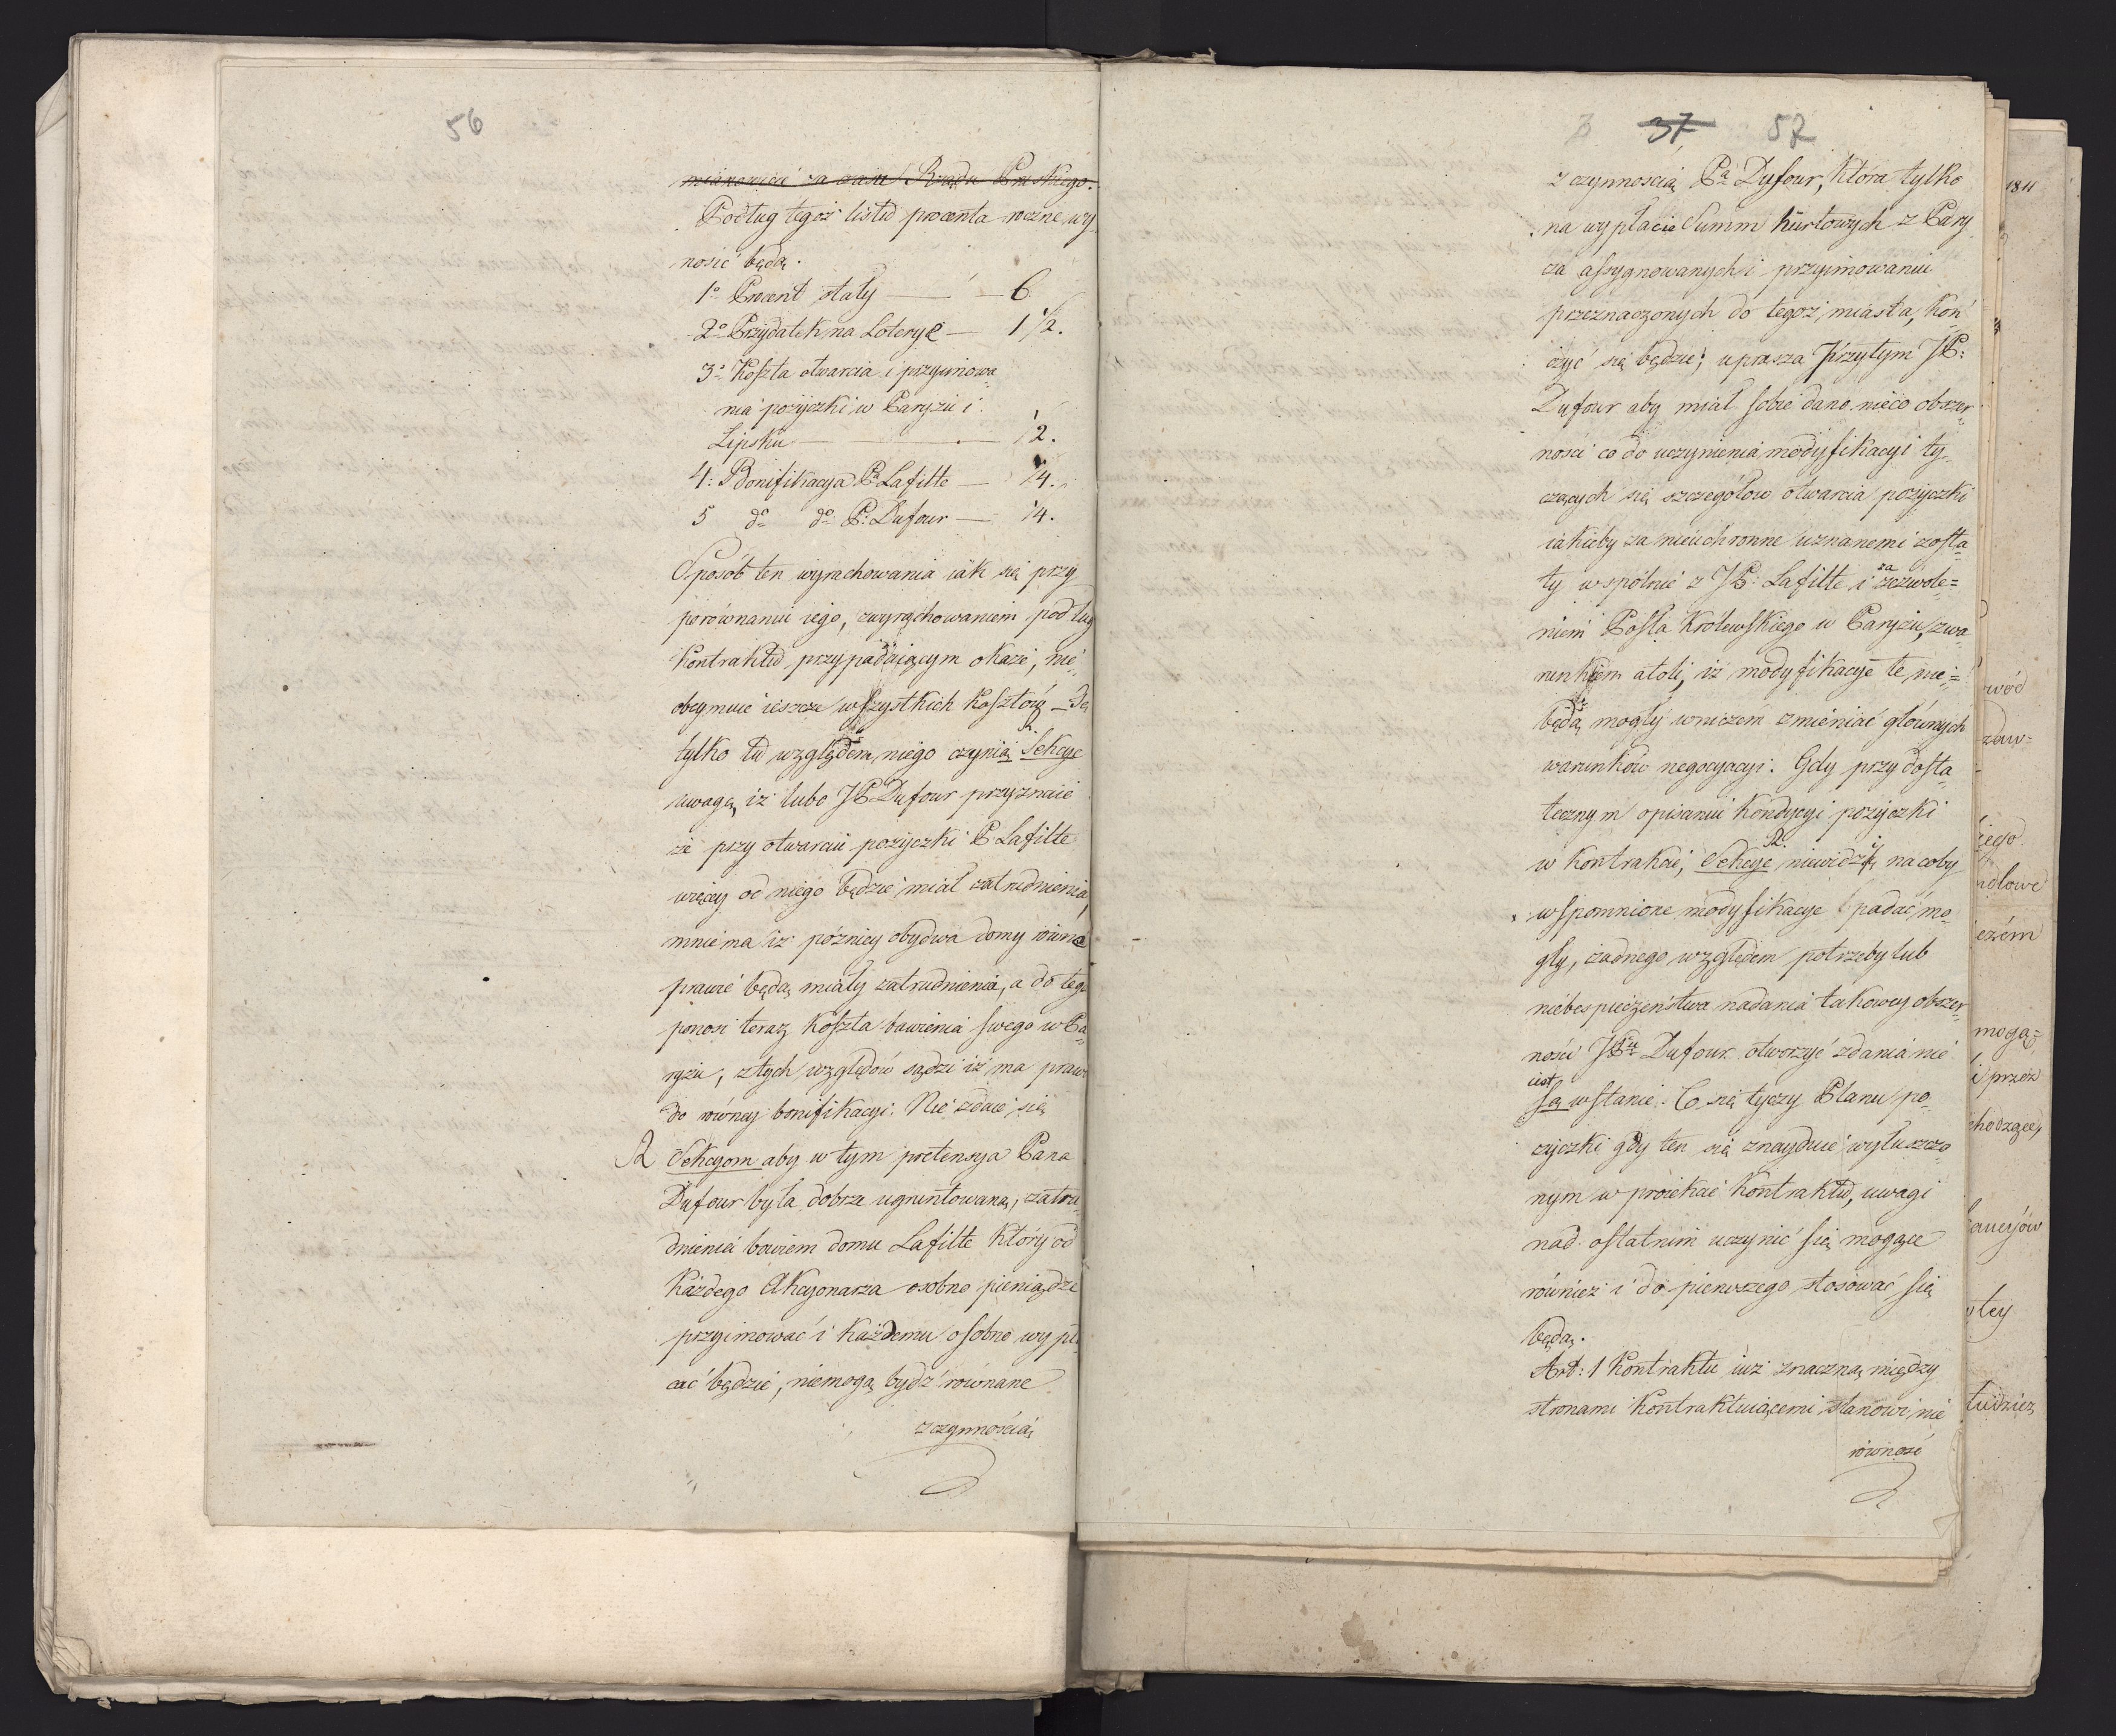 56
mianowicie za czasu Rządu Pruskiego.
Podług tegoż listu procenta roczne wy
nosić będą.
1º Procent stały — — 6.
2º Przydatek na Loteryę — 1 1/2.
3º Koszta otwarcia i przyimowa
nia pożyczki w Paryżu i
Lipsku — — 1/2.
4: Bonifikacya P. Lafitte — 1/4.
5 dº dº P: Dufour — 1/4.
Sposób ten wyrachowania iak się przy
porównaniu iego, z wyrachowaniem podług
Kontraktu przypadaiącym okaże, nie
obeymuie ieszcze wszystkich Kosztów —
tylko tu względem niego czynią Sekcye
uwagę, iż lubo JP Dufour przyznaie
że przy otwarciu pożyczki P Lafitte
więcey od niego będzie miał zatrudnienia,
mniema iż późniey obydwa domy równe
prawie będą miały zatrudnienia, a do tego
ponosi teraz Koszta bawienia swego w Pa
ryżu, z tych względów sądzi iż ma prawo
do równey bonifikacyi. Nie zdaie się
R Sekcyom aby w tym pretensya Pana
Dufour była dobrze ugruntowaną, zatru
dnienia bowiem domu Lafitte który od
Każdego Akcyonarza osobno pieniądze
przyimować i Każdemu osobno wypła
cać będzie, niemogą bydź równane
z czynnością
37 57
z czynnością Pa Dufour, która tylko
na wypłacie Summ hurtowych z Pary
ża assygnowanych i przyimowaniu
przeznaczonych do tegoż miasta, Koń
czyć się będzie; uprasza przytym JP:
Dufour aby miał sobie dano nieco obszer
ności co do uczynienia modyfikacyi ty
czących się szczegółów otwarcia pożyczki
iakieby za nieuchronne uznanemi zosta
ły wspólnie z JP: Lafitte i za zezwole=
niem Posła Królewskiego w Paryżu, z wa
runkiem atoli, iż modyfikacye te nie=
będą mogły wniczem zmieniać głównych
warunków negocyacyi. Gdy przy dosta
tecznym opisaniu Kondycyi pożyczki
R.
w Kontrakcie, Sekcye niewidzą na coby
wspomnione modyfikacye padać mo
gły, żadnego względem potrzeby lub
niebespieczeństwa nadania takowey obszer
ności JPu Dufour otworzyć zdania nie
iest
są wstanie. Co się tyczy Planu po
życzki gdy ten się znayduie wyłuszczo
nym w proiekcie Kontraktu, uwagi
nad ostatnim uczynić się mogące
również i do pierwszego stosować się
będą.
Art: 1 Kontraktu iuż znaczną między
stronami Kontraktuiącemi stanowi nie
równość
1811
wód
zaw=
iego
dlowe
czém
mogą=
i przez
chodzące,
tey
tudzież